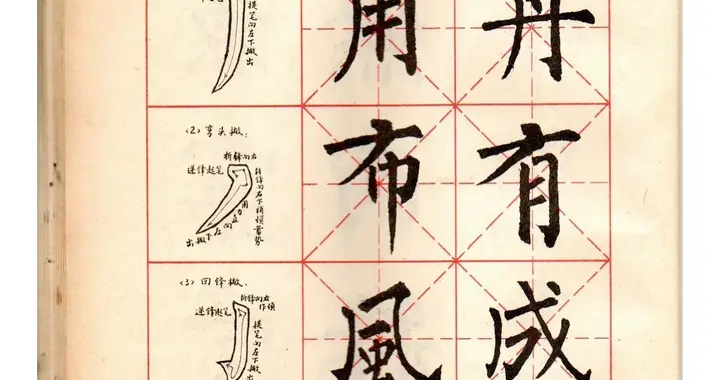 提笔向左下撇出
用 丹
（2）弯头撇：
折锋向右
逆锋起笔
转锋向右下稍顿蓄势
向左下撇出
布 有
（3）回锋撇：
折锋向右
作顿
逆锋起笔
提笔向左下撇
風 成